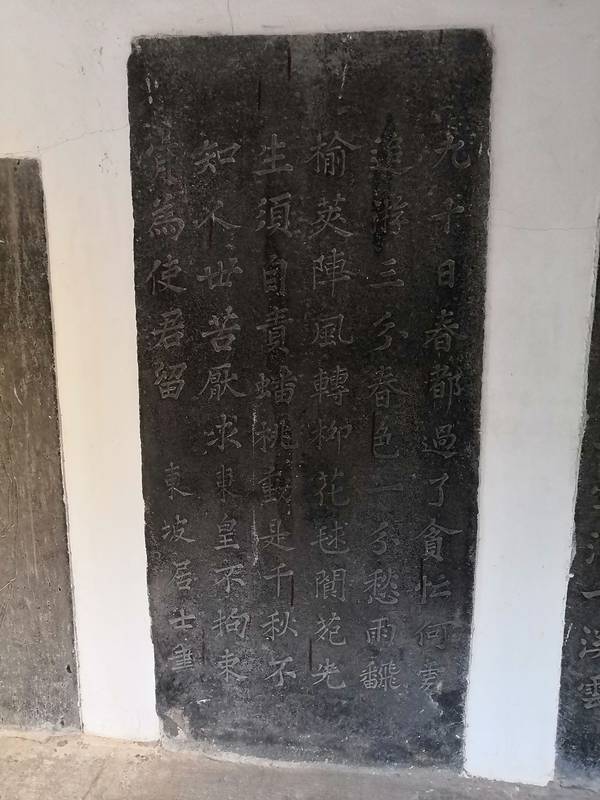 九十日春都過了貪忙何處
追游三分春色一分愁雨飜
榆莢陣風轉柳花毬閬苑先
生須自責蟠桃動是千秋不
知人世苦厭求東皇不拘束
肯為使君留 東坡居士書